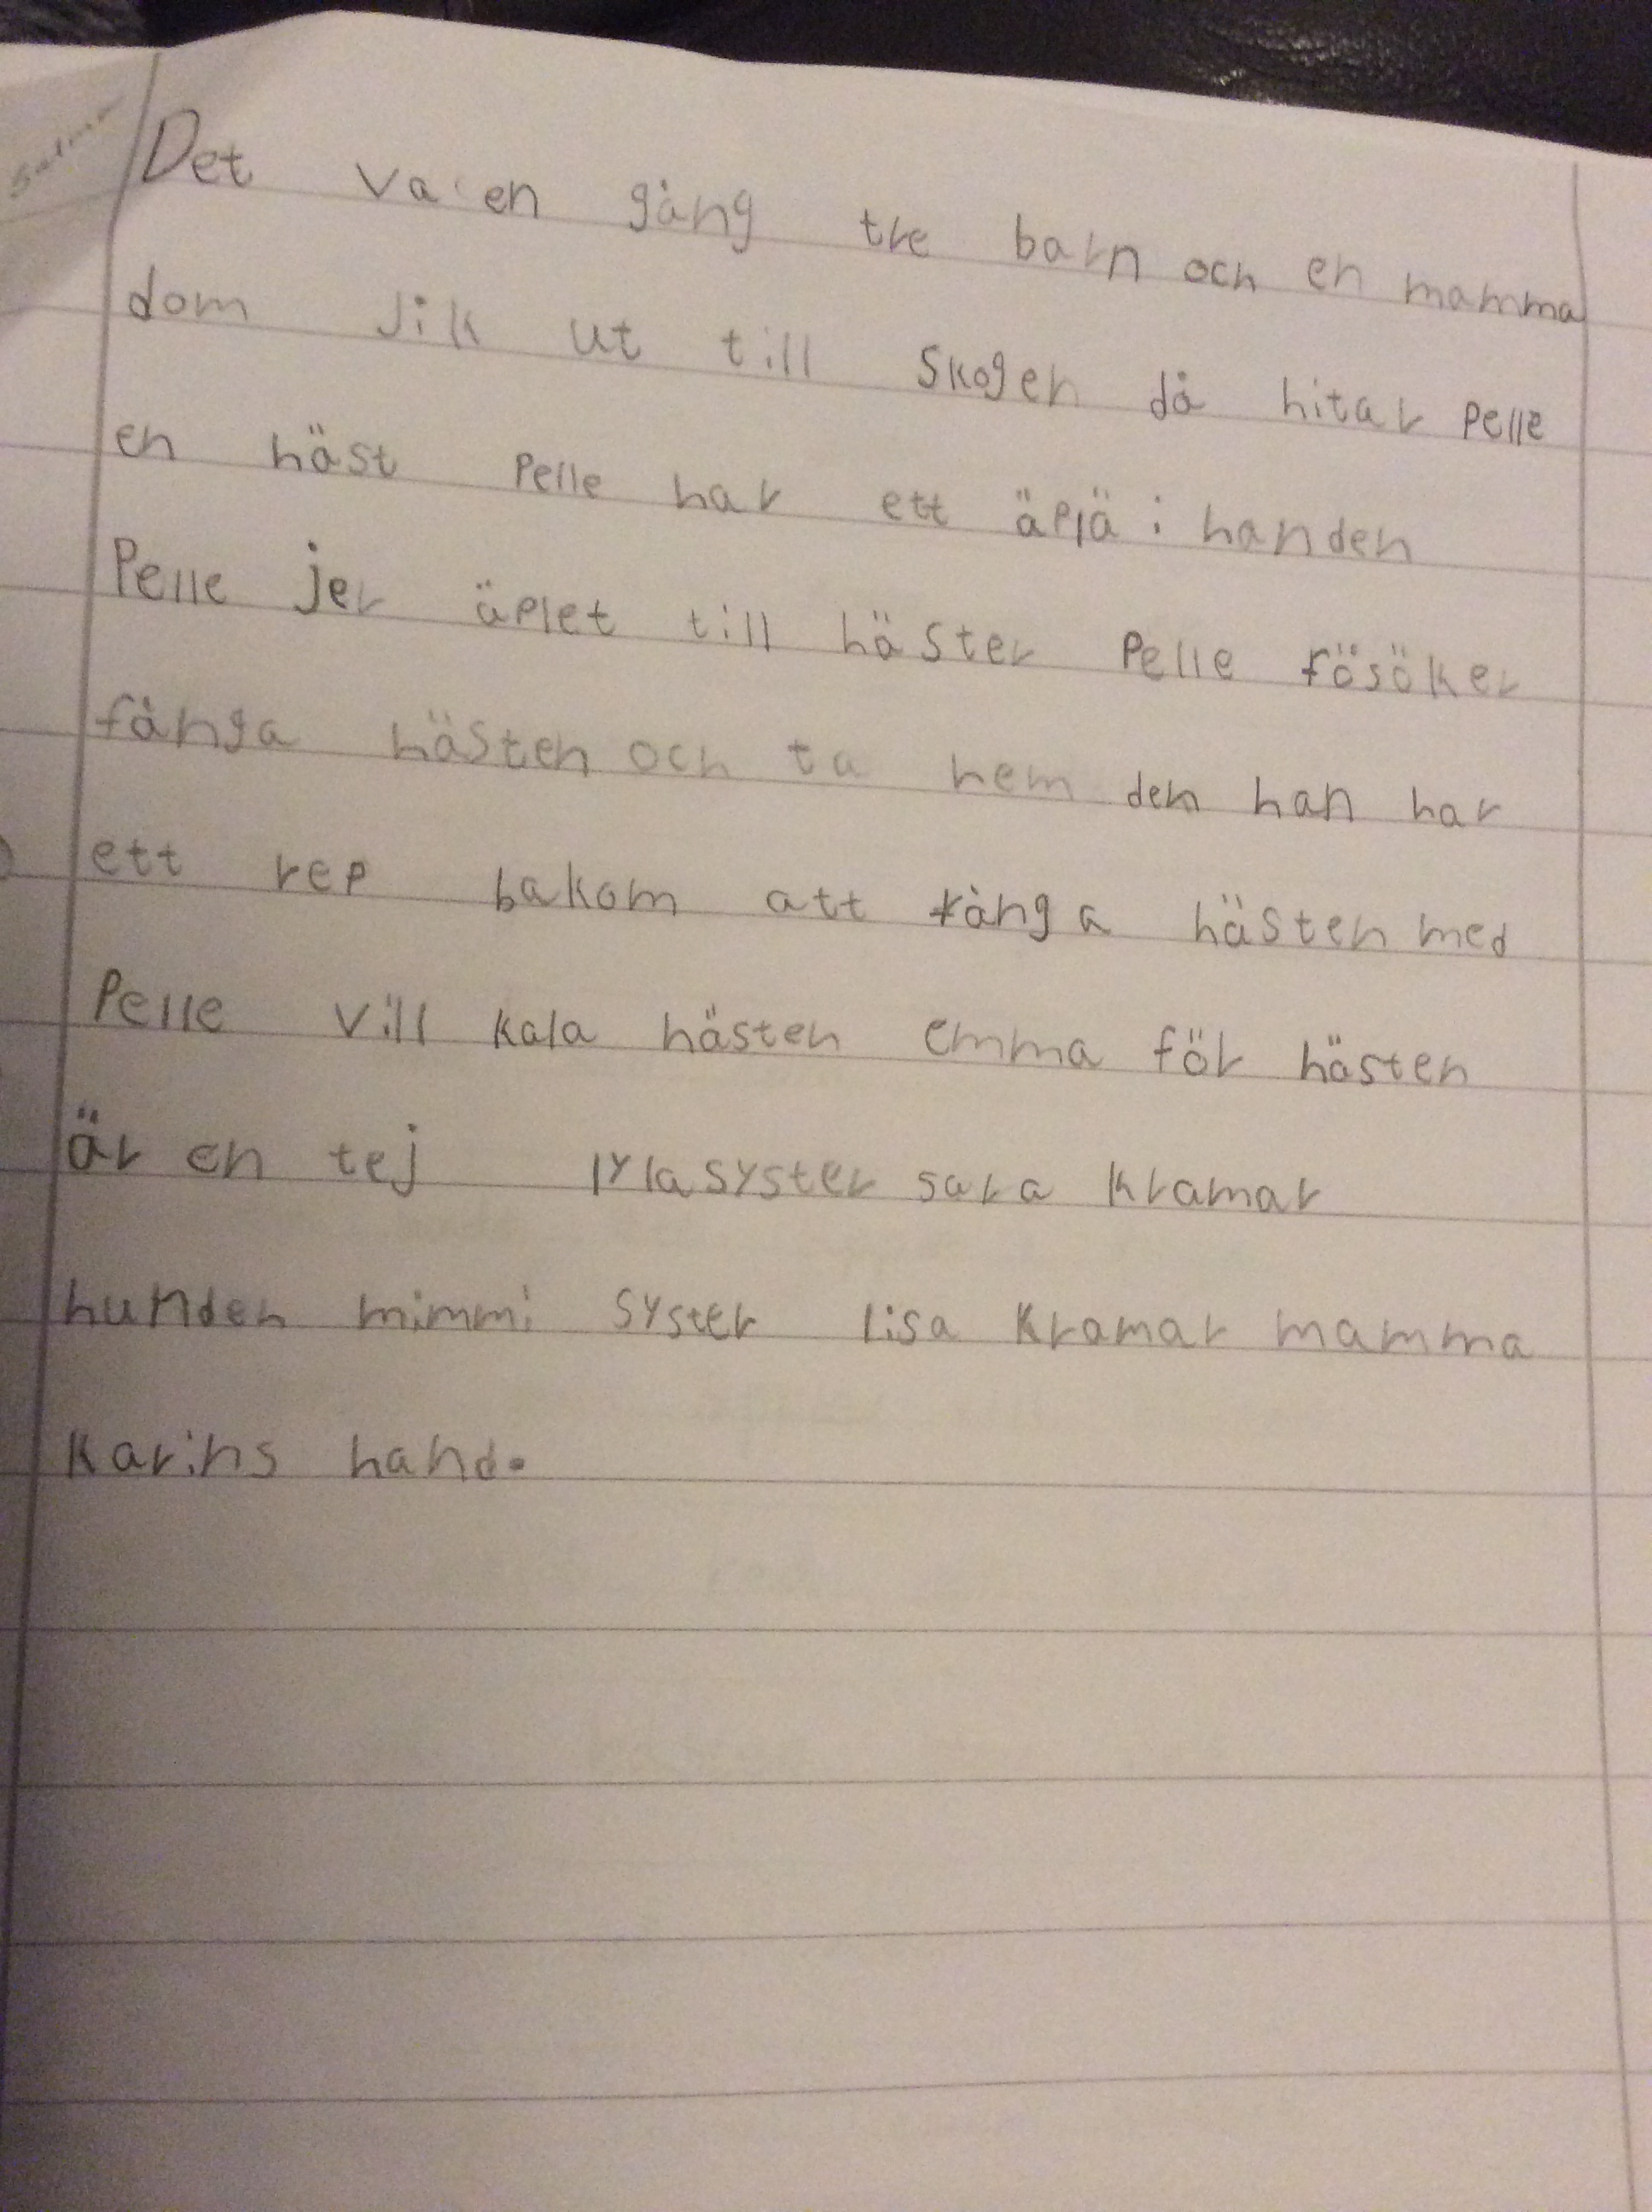 Det va en gång tre barn och en mamma
dom Jik ut till skogen då hitar Pelle
en häst Pelle har ett äplä i handen
Pelle jer äplet till häster Pelle fösöker
fånga hästen och ta hem den han har
ett rep bakom att fånga hästen med
Pelle vill kala hästen emma för hästen
är en tej lylasyster sara kramar
hunden mimmi syster lisa kramar mamma
karins hand.